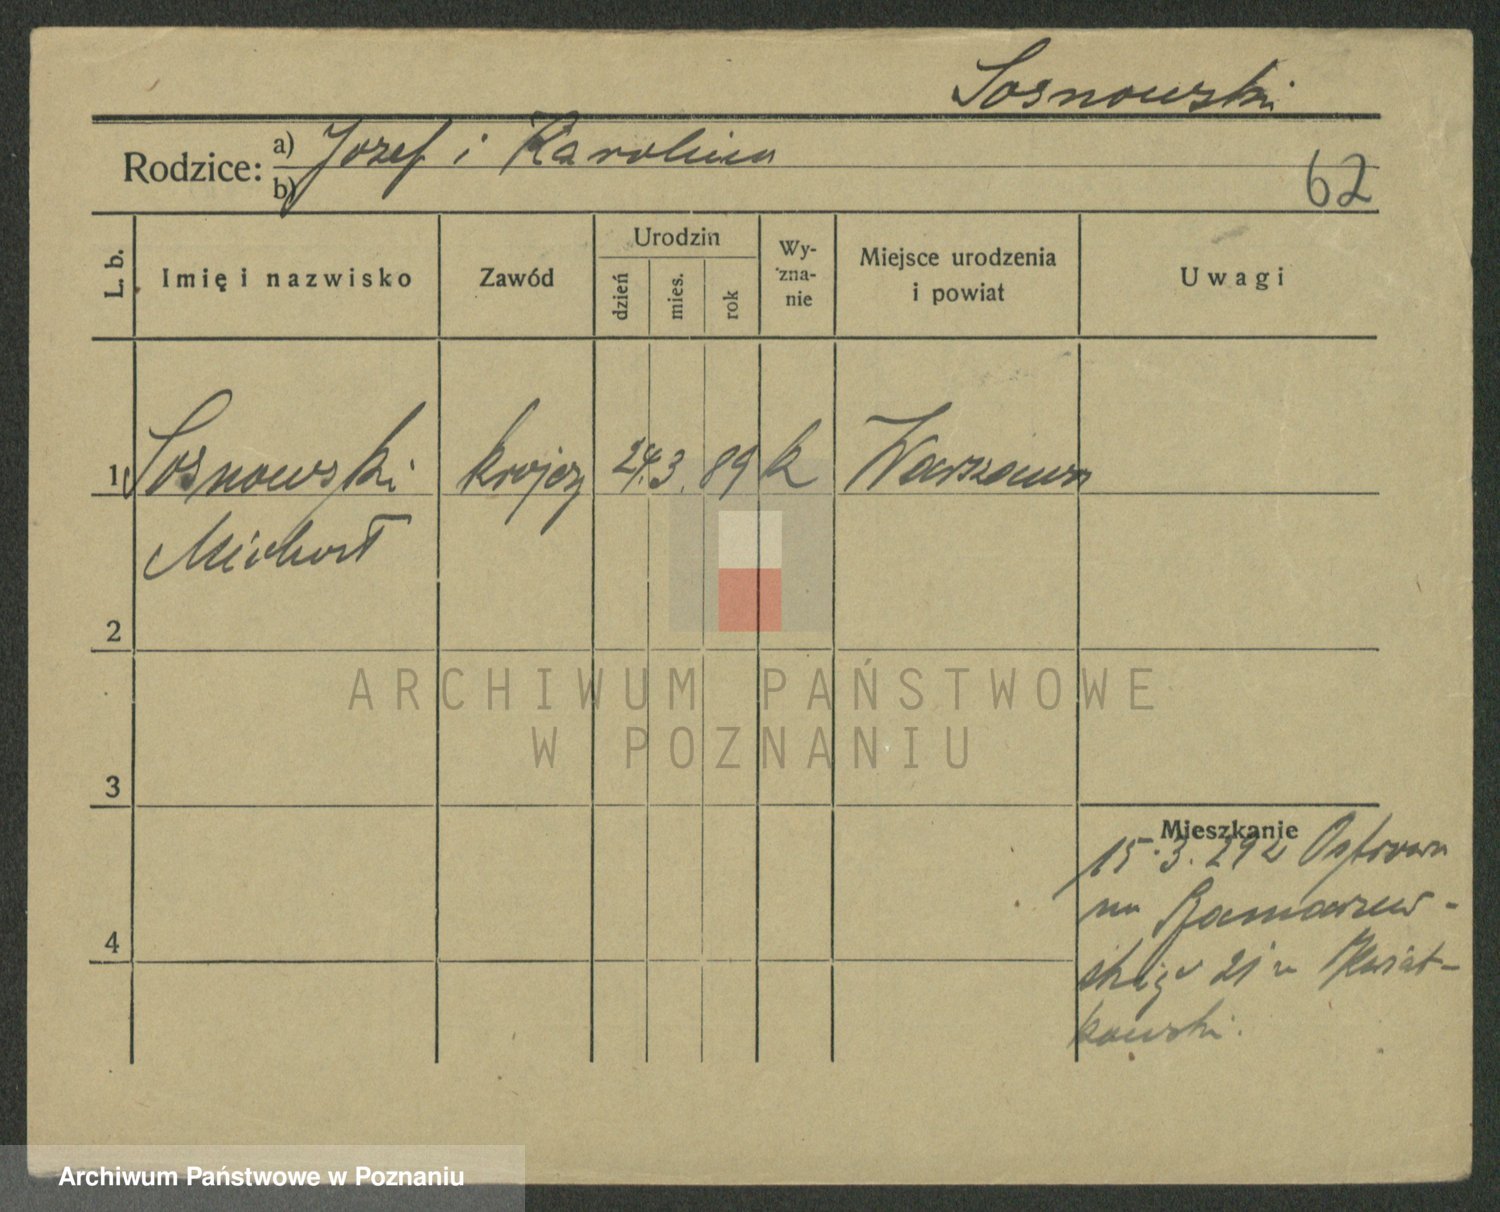 Sosnowski
Rodzice: a) Jozef i Karolina
b)
62
L. b.
Imię i nazwisko
Zawód
Urodzin
dzień
mies.
rok
Wy-
zna-
nie
Miejsce urodzenia
i powiat
Uwagi
1 Sosnowski krojczy 24. 3. 89 k Warszawa
Michał
2
ARCHIWUM PAŃSTWOWE
W POZNANIU
3
Mieszkanie
15. 3. 29 z Ostrowa
na
4
21 u Kwiat-
kowski.
Archiwum Państwowe w Poznaniu